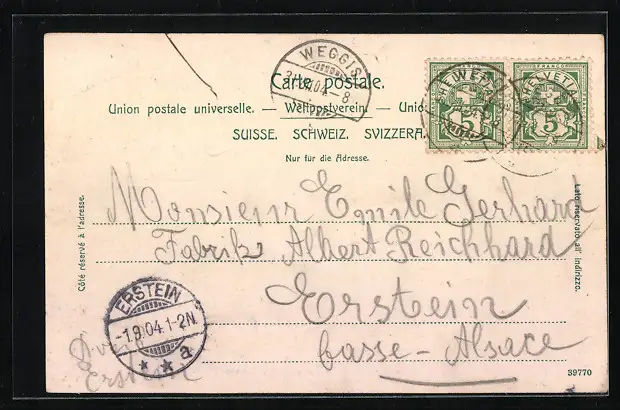 WEGGIS
Carte postale.
Union postale universelle. — Weltpostverein. — Unio
SUISSE. SCHWEIZ. SVIZZERA.
Nur für die Adresse.
FRANCO
HELVETIA
5
5
Côté réservé à l'adresse.
Lato riservato all' indirizzo.
Monsieur Emile Gerhard
Fabrik Albert Reichhard
Erstein
basse-Alsace
ERSTEIN
-1.9.04.1-2N.
* * a
Erstein
39770